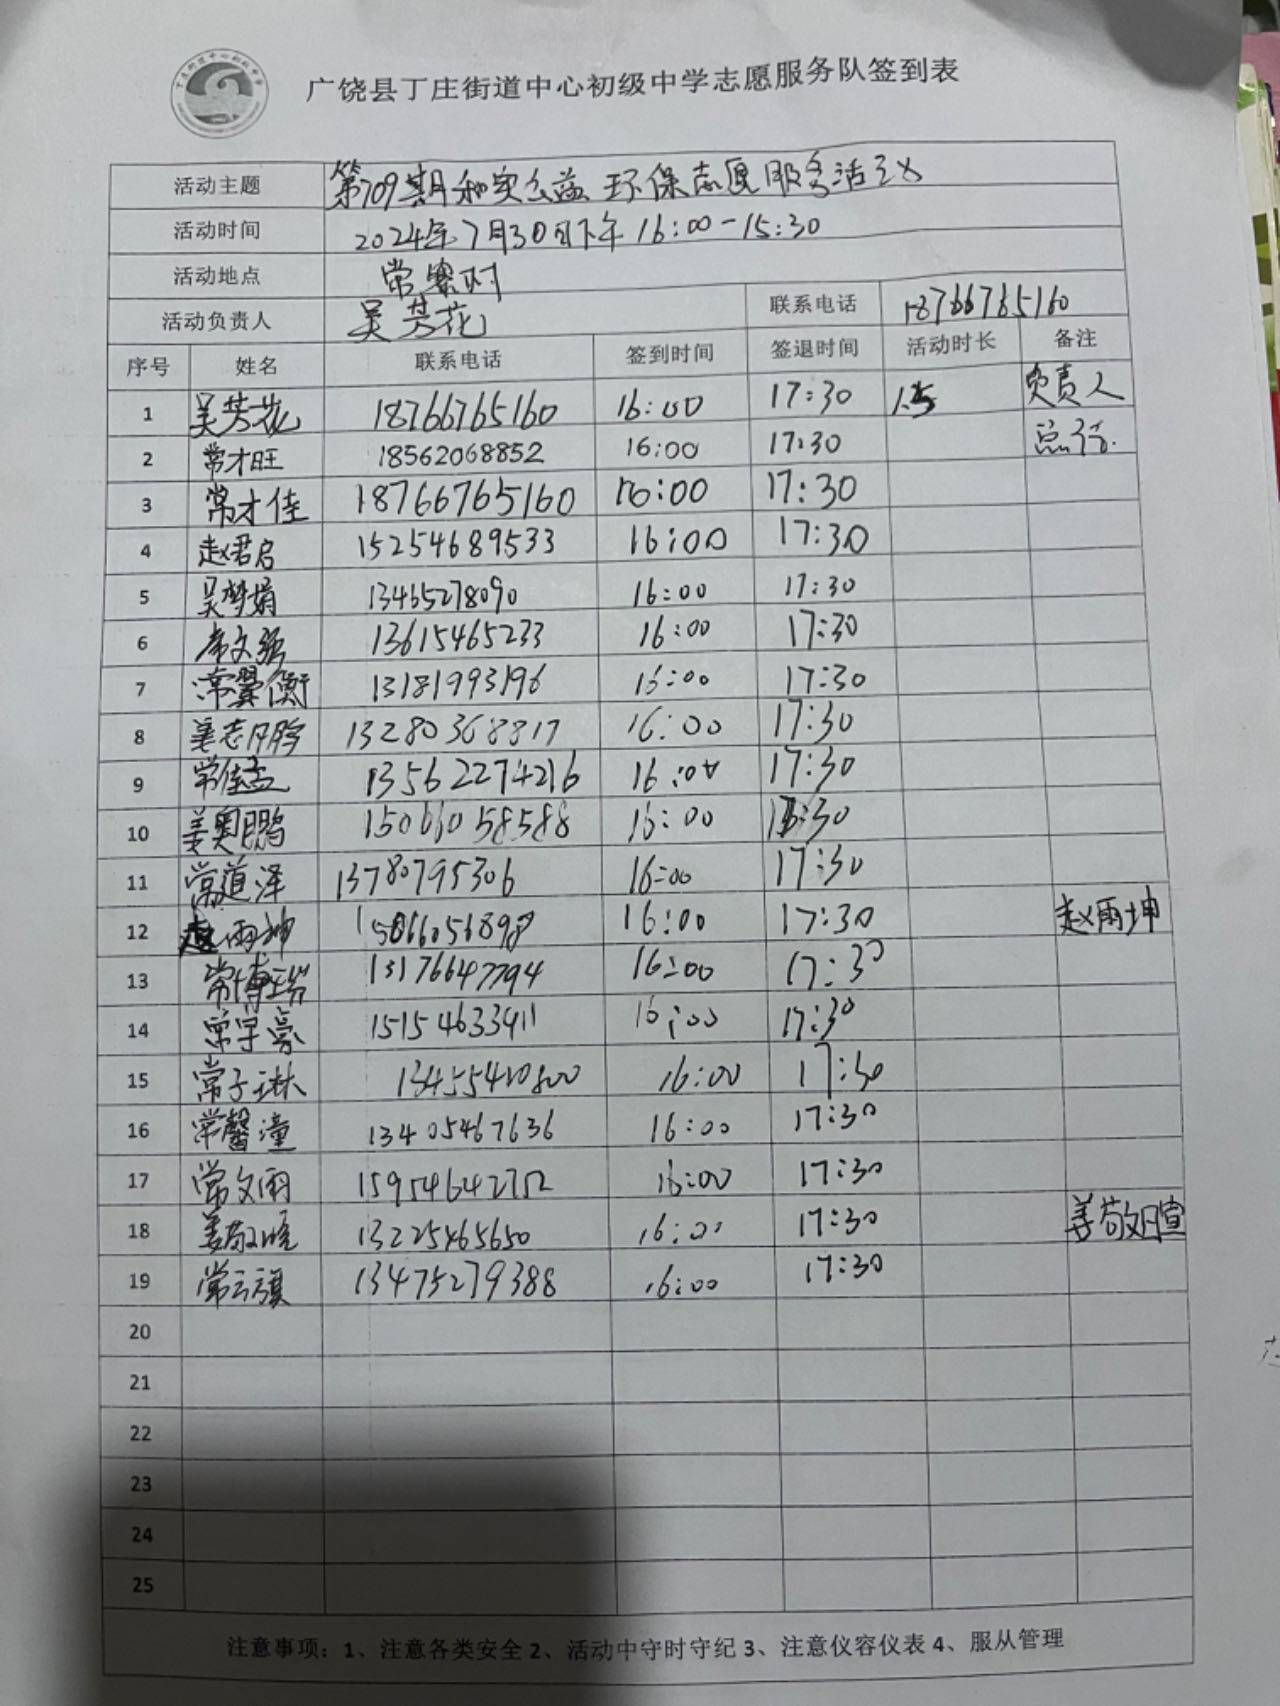 广饶县丁庄街道中心初级中学志愿服务队签到表
活动主题 第709期和实公益环保志愿服务活动
活动时间 2024年7月30日下午16:00-15:30
活动地点 常寨村
活动负责人 吴芳花 联系电话 18766765160
序号 姓名 联系电话 签到时间 签退时间 活动时长 备注
1 吴芳花 18766765160 16:00 17:30 1.5 负责人
2 常才旺 18562068852 16:00 17:30
3 常才佳 18766765160 16:00 17:30
4 赵君启 15254689533 16:00 17:30
5 吴梦娟 13465278090 16:00 17:30
6 常文强 13615465233 16:00 17:30
7 常翼衡 13181993196 16:00 17:30
8 姜志鹏 13280368817 16:00 17:30
9 常佳孟 13562274216 16:00 17:30
10 姜奥鹏 15066058588 16:00 17:30
11 常道泽 13780795306 16:00 17:30
12 赵雨坤 15866056898 16:00 17:30 赵雨坤
13 常博瑞 13176647794 16:00 17:30
14 常宇豪 15154633911 16:00 17:30
15 常子琳 13455410800 16:00 17:30
16 常馨潼 13405467636 16:00 17:30
17 常文雨 15954642752 16:00 17:30
18 姜敬暄 13225465650 16:00 17:30 姜敬暄
19 常云旗 13475279388 16:00 17:30
20
21
22
23
24
25
注意事项：1、注意各类安全 2、活动中守时守纪 3、注意仪容仪表 4、服从管理